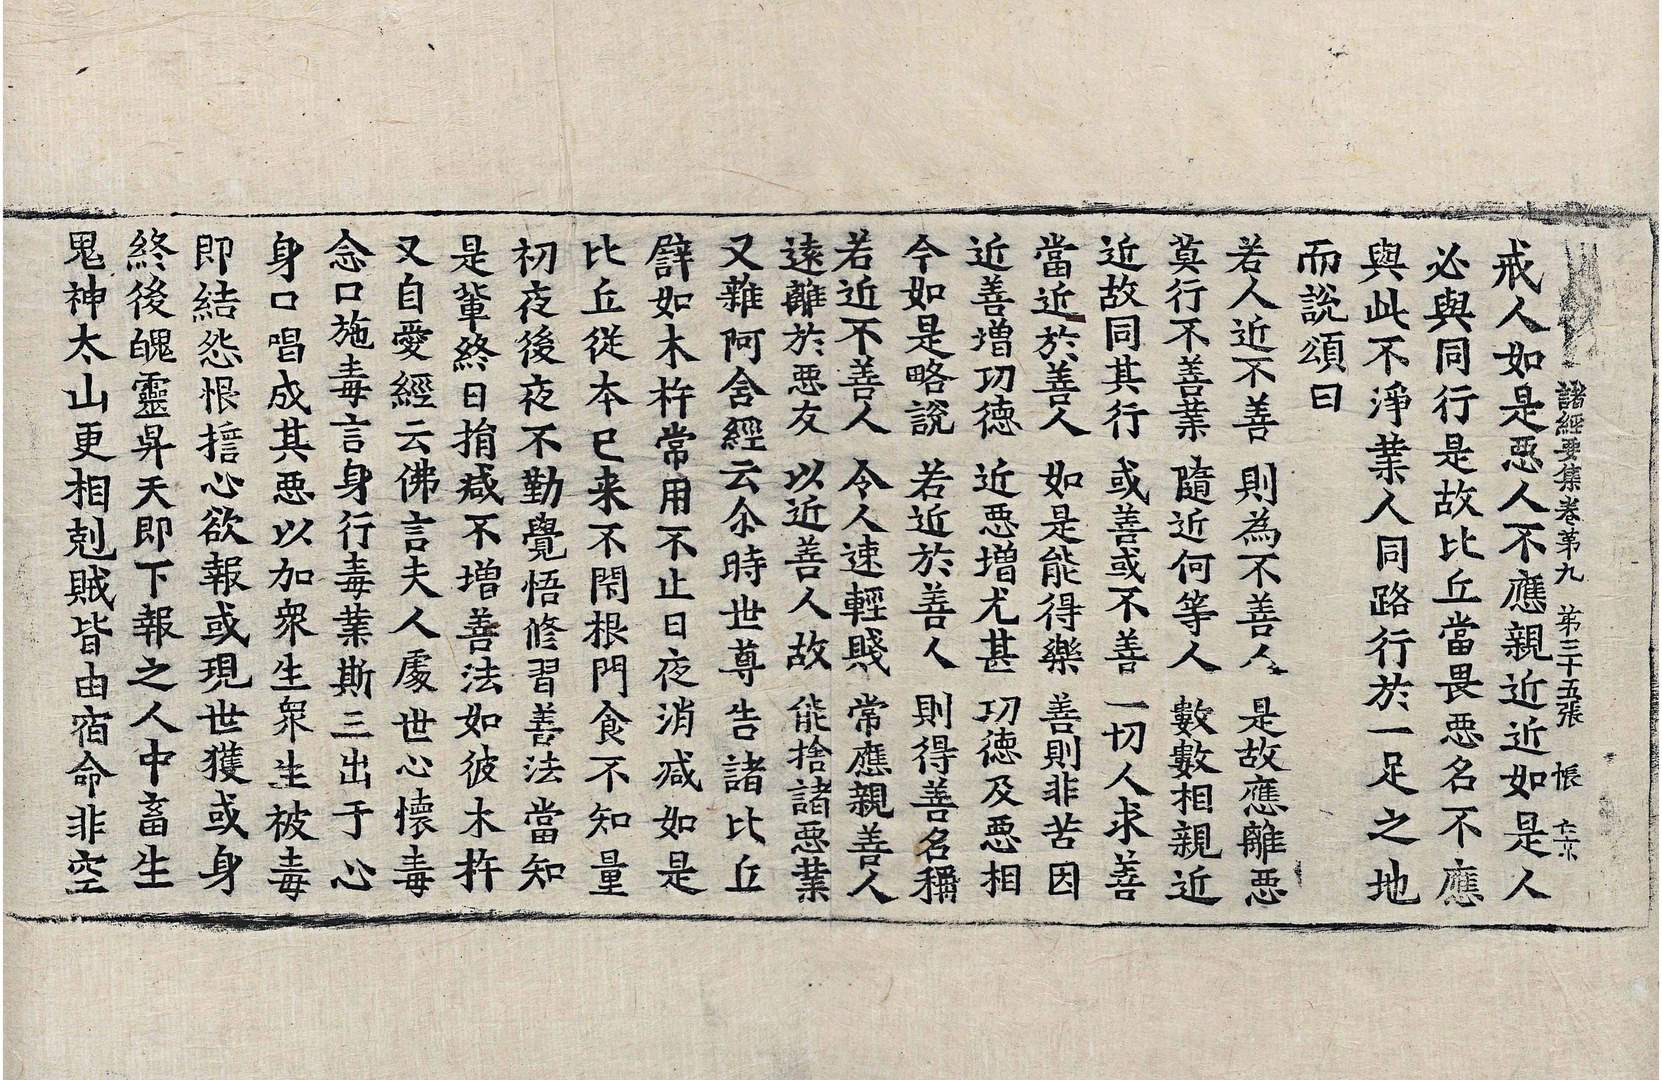 諸經要集卷第九 第三十五張 帳
戒人如是惡人不應親近近如是人
必與同行是故比丘當畏惡名不應
與此不淨業人同路行於一足之地
而說頌曰
若人近不善 則為不善人 是故應離惡
莫行不善業 隨近何等人 數數相親近
近故同其行 或善或不善 一切人求善
當近於善人 如是能得樂 善則非苦因
近善增功德 近惡增尤甚 功德及惡相
今如是略說 若近於善人 則得善名稱
若近不善人 令人速輕賤 常應親善人
遠離於惡友 以近善人故 能捨諸惡業
又雜阿含經云尒時世尊告諸比丘
譬如木杵常用不止日夜消減如是
比丘從本已来不閇根門食不知量
初夜後夜不勤覺悟修習善法當知
是輩終日損減不增善法如彼木杵
又自愛經云佛言夫人處世心懷毒
念口施毒言身行毒業斯三出于心
身口唱成其惡以加衆生衆生被毒
即結怨恨誓心欲報或現世獲或身
終後魄靈昇天即下報之人中畜生
鬼神太山更相剋賊皆由宿命非空